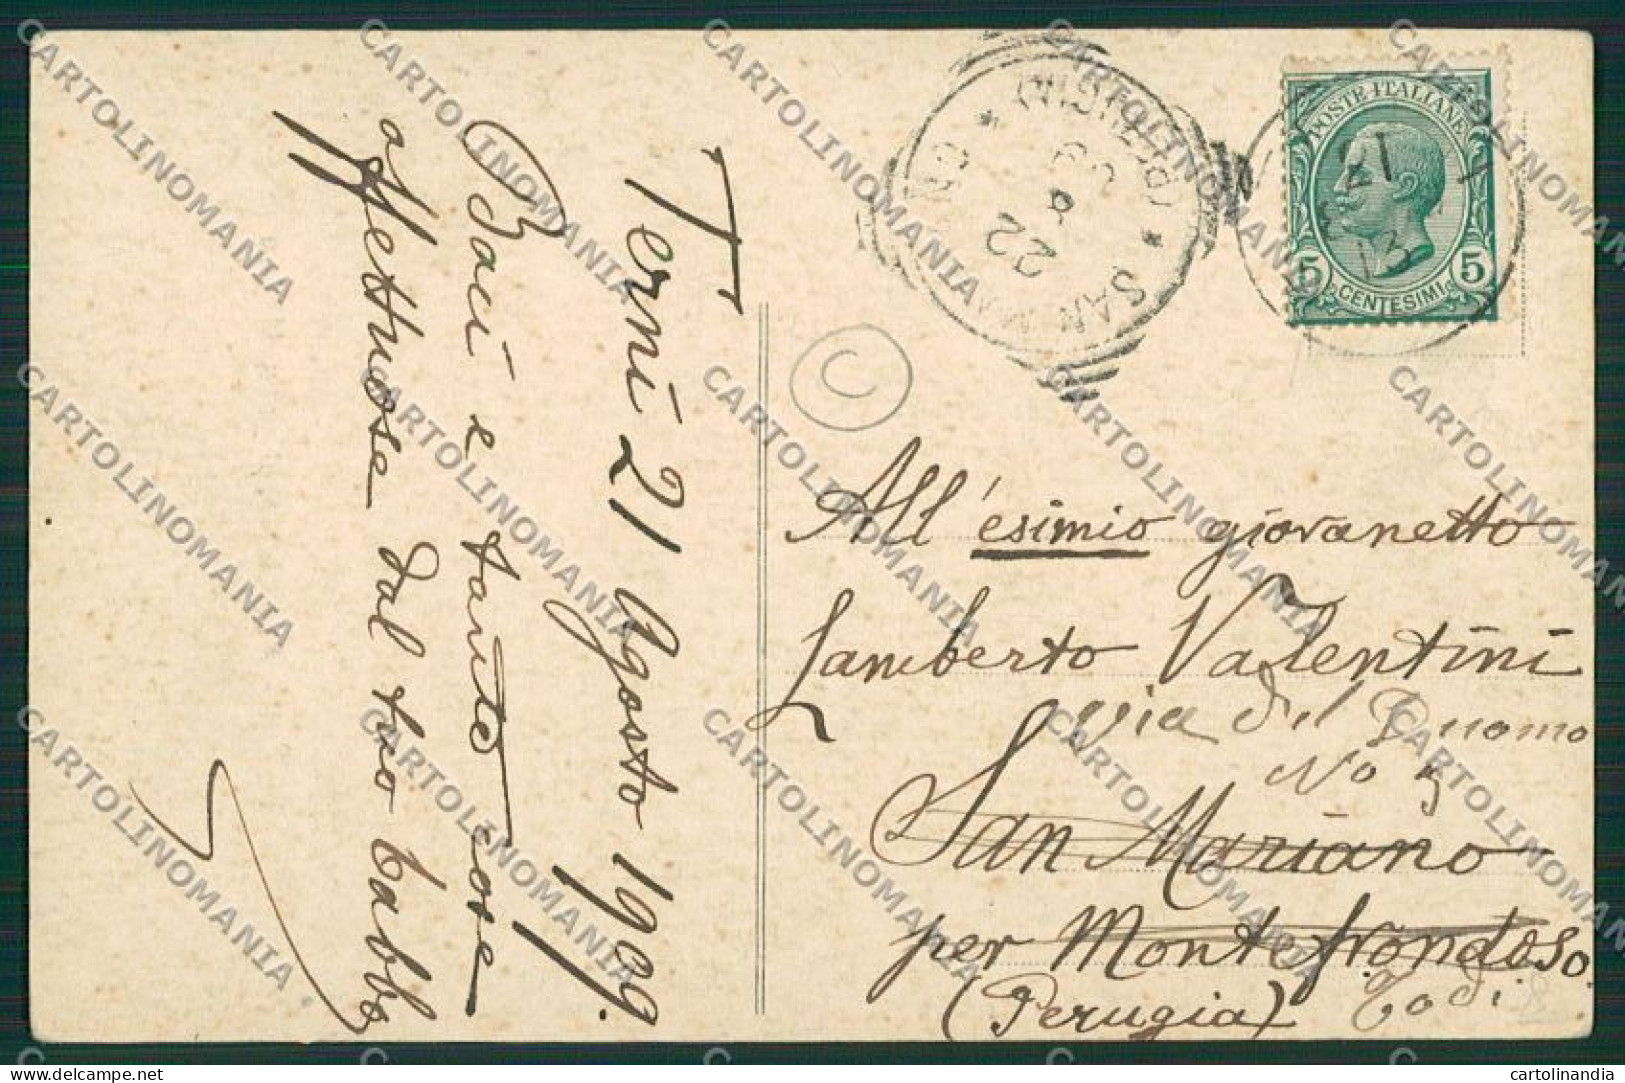 Terni 21 Agosto 1909.
Baci e tante cose
affettuose dal tuo babbo
POSTE ITALIANE
5 CENTESIMI 5
21
13
SAN MA
* (PERUGIA) *
22
09
C
All'esimio giovanetto
Lamberto Valentini
via del Duomo
No 5
San Mariano
per Montefrondoso
(Perugia) Todi
CARTOLINOMANIA
cartolinandia